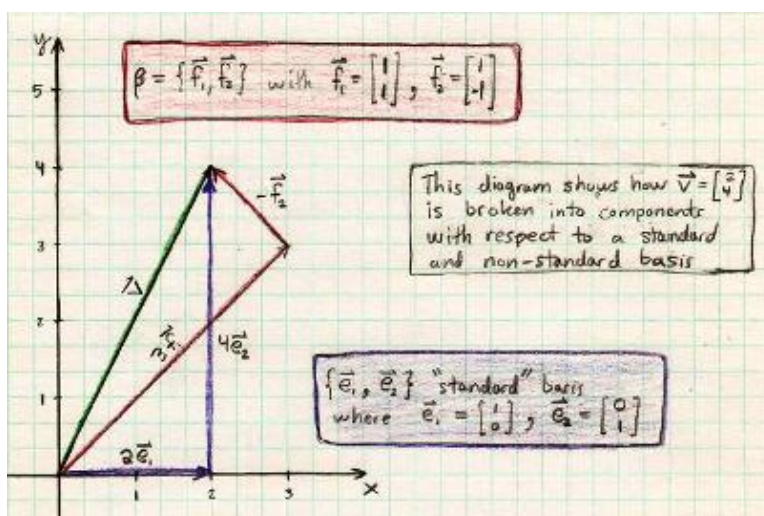 y
β = {f⃗₁, f⃗₂} with f⃗₁ = [1 1], f⃗₂ = [1 -1]
5
4
3
2
1
This diagram shows how v⃗ = [2 4]
is broken into components
with respect to a standard
and non-standard basis
-f⃗₂
v⃗
3f⃗₁
4e⃗₂
{e⃗₁, e⃗₂} "standard" basis
where e⃗₁ = [1 0], e⃗₂ = [0 1]
2e⃗₁
1
2
3
x